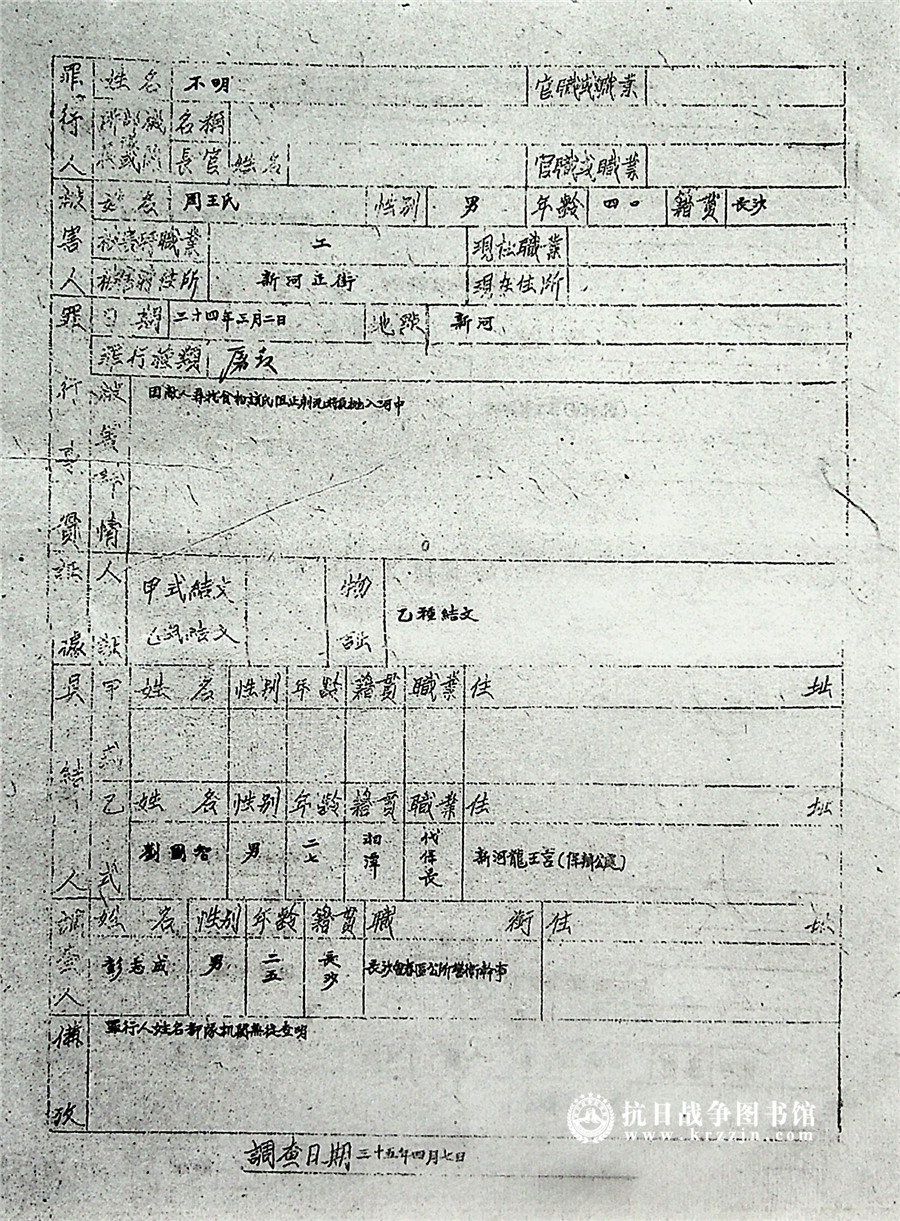 罪行人 姓名 不明 官職或職業
名稱
長官姓名 官職或職業
被害人 姓名 周王氏 性別 男 年齡 四〇 籍貫 長沙
被害時職業 工 現在職業
被害時住所 新河正街 現在住所
罪行事實 日期 三十四年三月二日 地點 新河
罪行種類 屠殺
被害詳情 因敵人尋找食物該氏阻止
入河中
証據 人証 甲式結文 乙式結文 物証 乙種結文
具結人 甲式 姓名 性別 年齡 籍貫 職業 住址
乙式 姓名 性別 年齡 籍貫 職業 住址
劉國智 男 二七 湘潭 代保長 新河龍王宮(保辦公處)
調查人 姓名 性別 年齡 籍貫 職銜 住址
男 二五 長沙 長沙會春區公所警衛幹事
備攷 罪行人姓名部隊机關無從查明
調查日期 三十五年四月七日
抗日战争图书馆
www.krzzjn.com